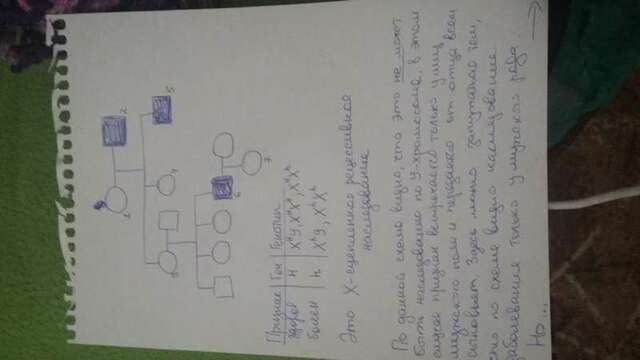 1
2
3
4
5
6
7
Признак Ген Генотип
здоров H XᴴY, XᴴXᴴ, XᴴXʰ
болен h XʰY, XʰXʰ
Это X-сцепленное рецессивное
наследование
По данной схеме видно, что это не может
быть наследованно по Y-хромосоме, в этом
случае признак встречается только у лиц
мужского пола и передается от отца всем
сыновьям. Здесь можно запутаться тем,
что по схеме видно наследование
заболевания только у мужского рода.
Но...